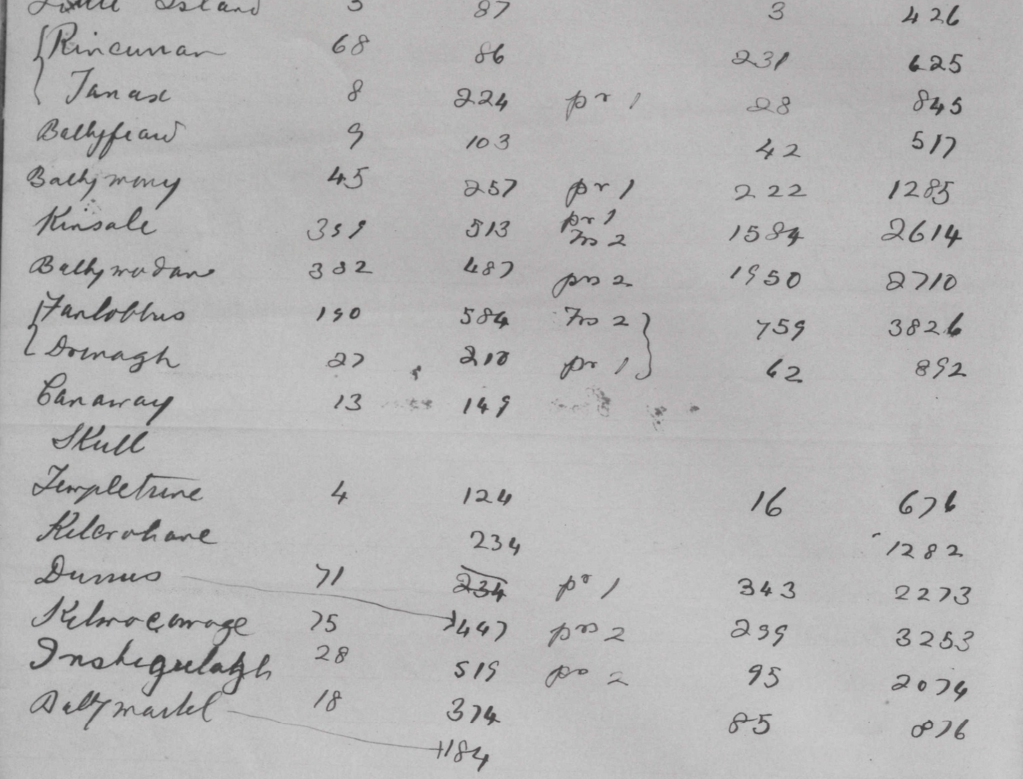 Little Island 3 87 3 426
Rincurran 68 86 231 625
Tanax 8 224 pr 1 28 845
Ballyfeard 9 103 42 517
Ballymony 45 257 pr 1 222 1285
Kinsale 359 513 pr 1 Frs 2 1584 2614
Ballymodane 382 487 prs 2 1950 2710
Fanlobbus 190 584 Frs 2 759 3826
Drinagh 27 210 pr 1 62 892
Canaway 13 149
Skull
Templetrine 4 124 16 676
Kilcrohane 234 1282
Durrus 71 234 pr 1 343 2273
Kilmocomoge 75 447 prs 2 299 3253
Inshigeelagh 28 519 prs 2 95 2074
Ballymartel 18 374 85 876
184